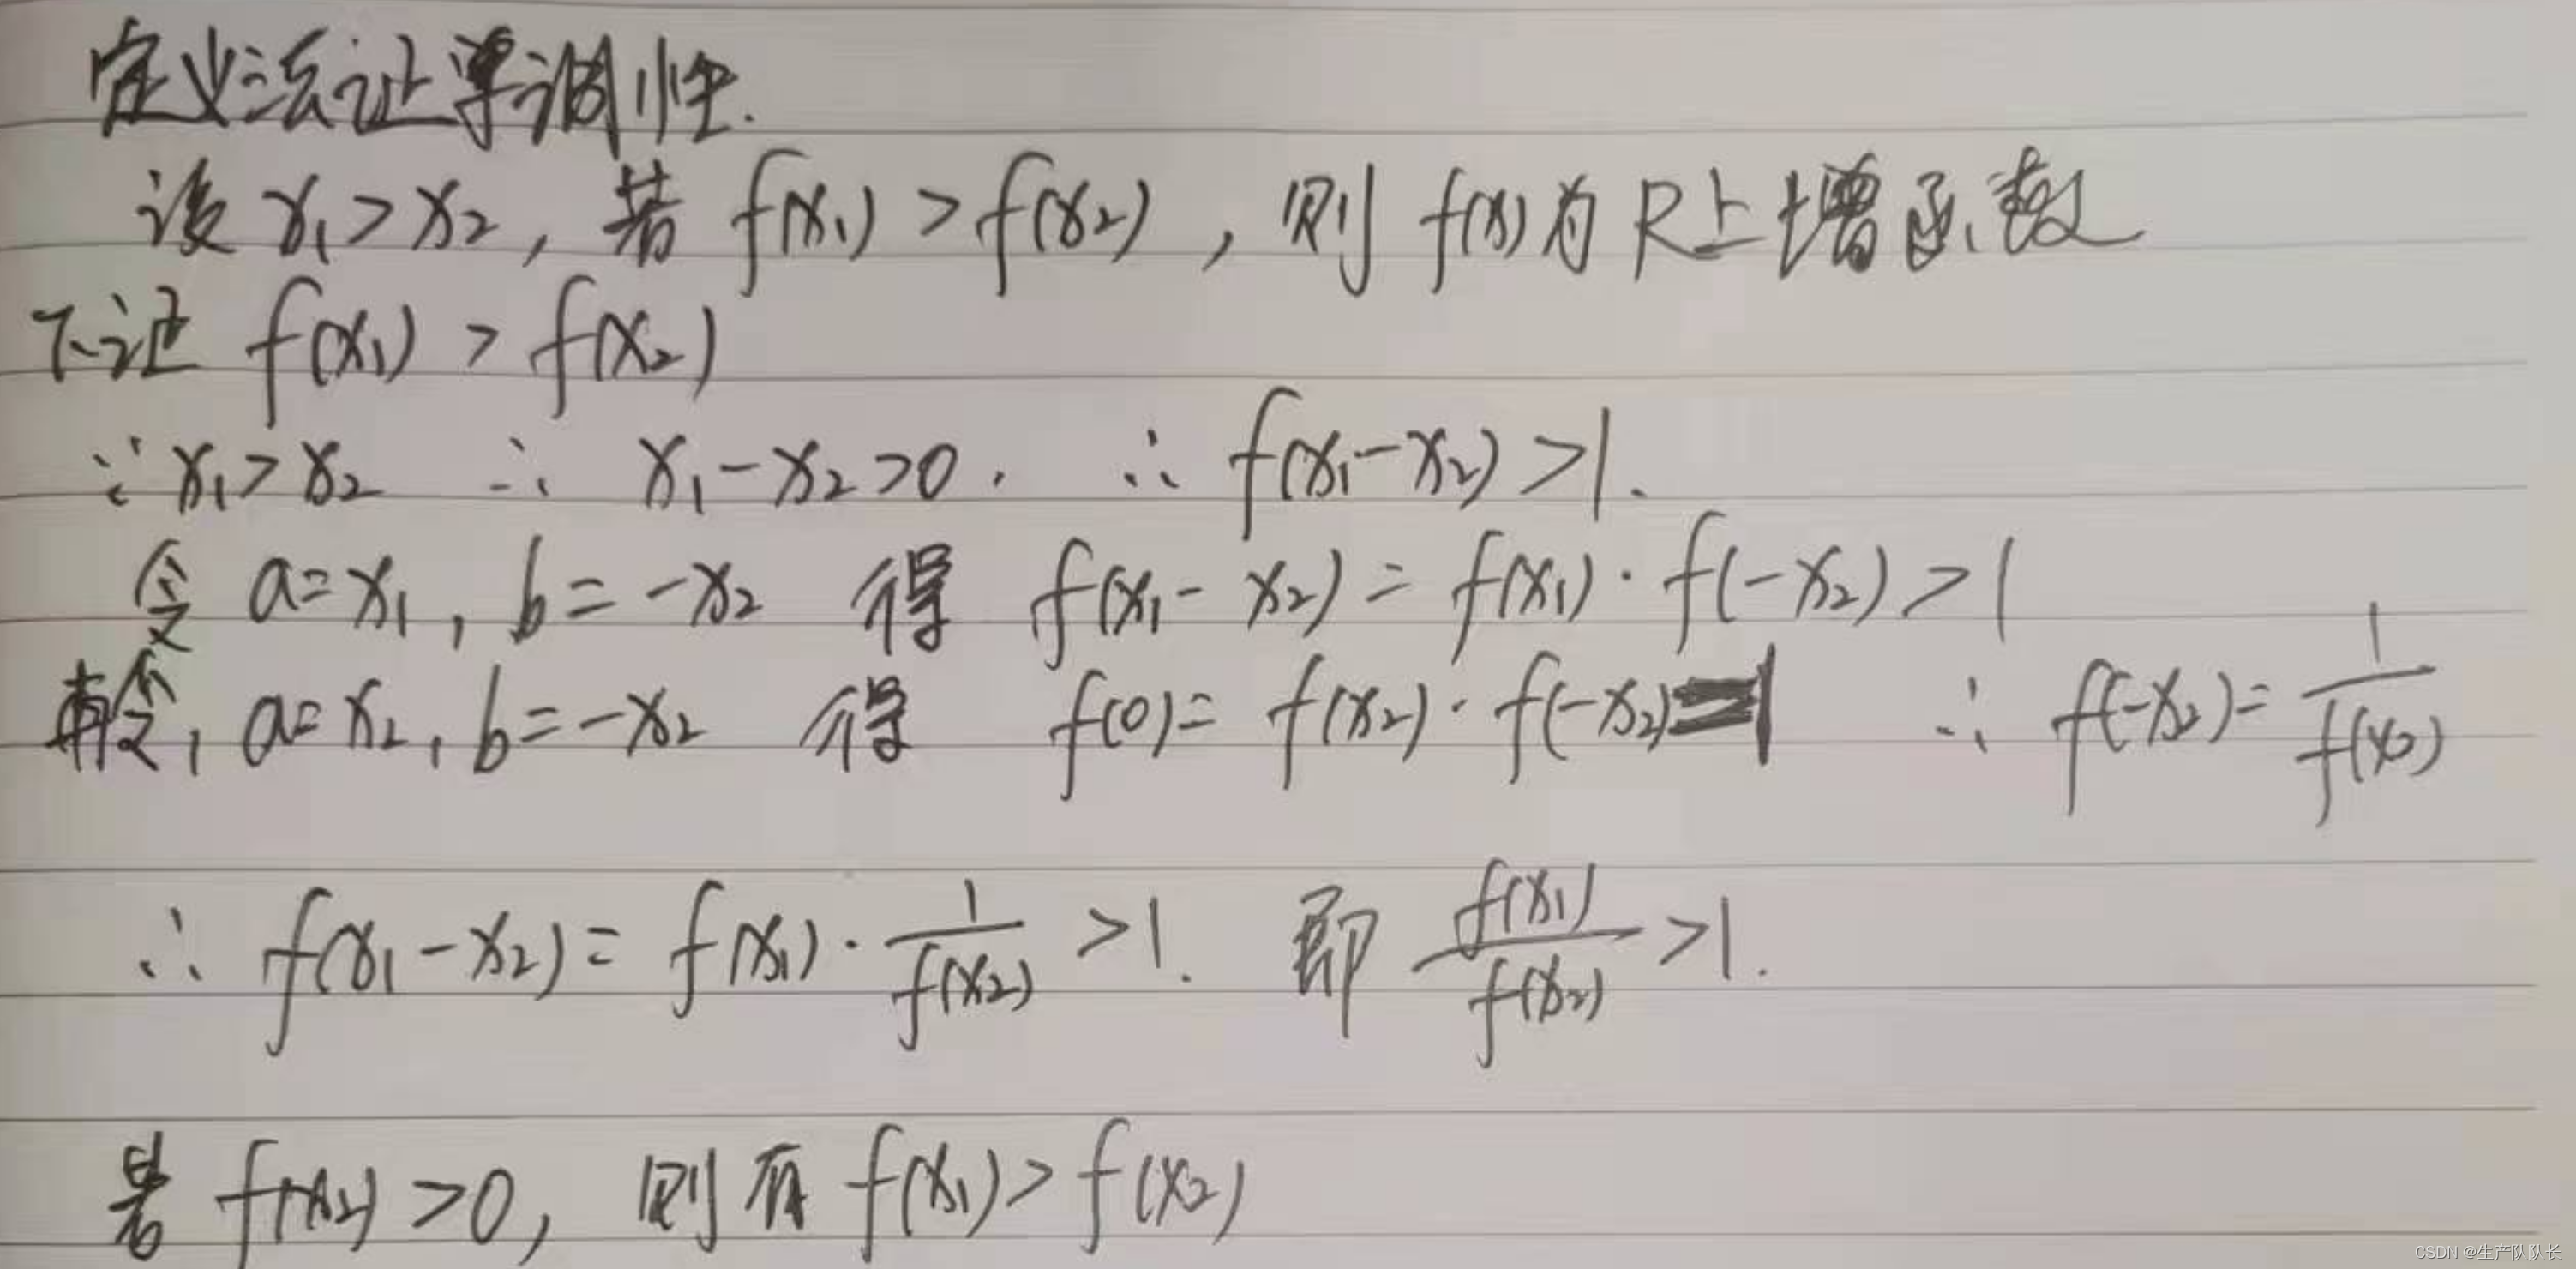 定义法证单调性.
设 x₁>x₂, 若 f(x₁)>f(x₂), 则 f(x)为R上增函数
下证 f(x₁)>f(x₂)
∵x₁>x₂ ∴ x₁-x₂>0. ∴ f(x₁-x₂)>1.
令 a=x₁, b=-x₂ 得 f(x₁-x₂)=f(x₁)·f(-x₂)>1
再令, a=x₂, b=-x₂ 得 f(0)=f(x₂)·f(-x₂)=1 ∴ f(-x₂)=1/f(x₂)
∴ f(x₁-x₂)=f(x₁)·1/f(x₂)>1. 即 f(x₁)/f(x₂)>1.
若 f(x₂)>0, 则有 f(x₁)>f(x₂)
CSDN @生产队队长